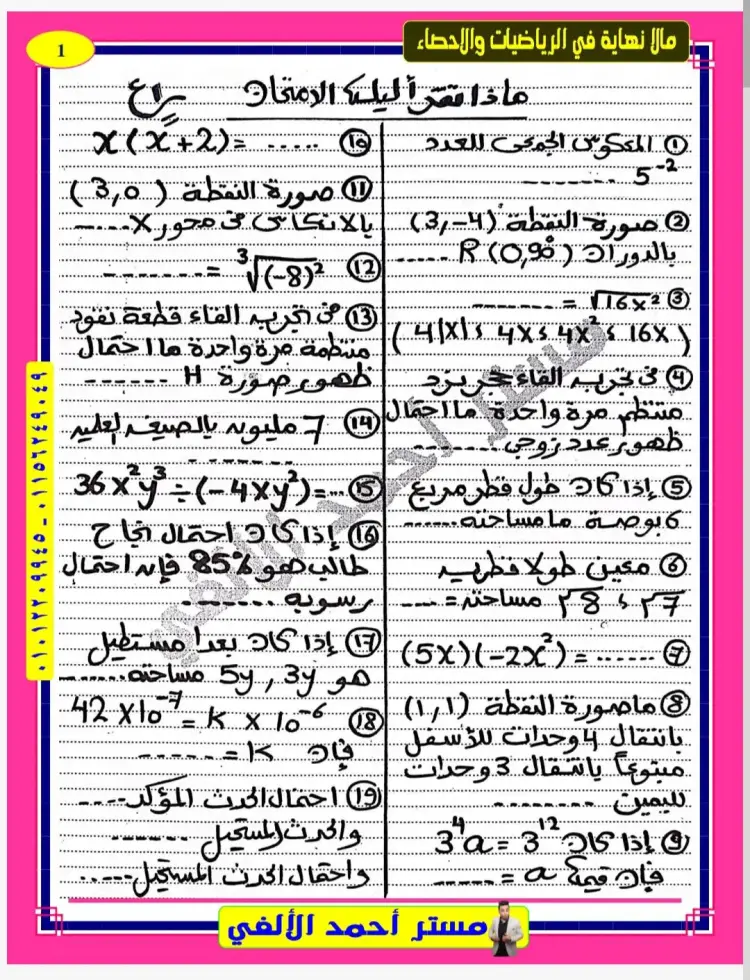 مالا نهاية في الرياضيات والاحصاء
1
ماذا تقرأ ليلة الامتحان
① المعكوس الجمعى للعدد
5⁻² .......
② صورة النقطة (3,-4)
بالدوران R(0,90°) .....
③ √16x² = .......
(4|x| ، 4x ، 4x² ، 16x)
④ فى تجربة القاء حجر نرد
منتظم مرة واحدة ما احتمال
ظهور عدد زوجى .......
⑤ إذا كان طول قطر مربع
6 بوصة ما مساحته ......
⑥ معين طولا قطريه
7√ ، 8√ مساحته = ....
⑦ (5x)(-2x²) = ......
⑧ ما صورة النقطة (1,1)
بانتقال 4 وحدات للأسفل
متبوعاً بانتقال 3 وحدات
لليمين ........
⑨ إذا كان 3⁴a = 3¹²
فإن قيمة a = .....
⑩ x(x+2) = .....
⑪ صورة النقطة (3,0)
بالانعكاس فى محور x.....
⑫ ∛(-8)² = .......
⑬ فى تجربة القاء قطعة نقود
منتظمة مرة واحدة ما احتمال
ظهور صورة H ......
⑭ 7 مليون بالصيغة العلمية
.......
⑮ 36x²y³ ÷ (-4xy²) = ...
⑯ إذا كان احتمال نجاح
طالب هو 85% فإن احتمال
رسوبه .......
⑰ إذا كان بعدا مستطيل
هو 5y , 3y مساحته.......
⑱ 42 x10⁻⁷ = K x 10⁻⁶
فإن K = ......
⑲ احتمال الحدث المؤكد....
والحدث المستحيل ......
واحتمال الحدث المستحيل.....
مستر أحمد الألفي
٠١٠١٢٢٠٩٩٤٥ - ٠١١٥٦٢٤٩٠٤٩
مستر أحمد الألفي